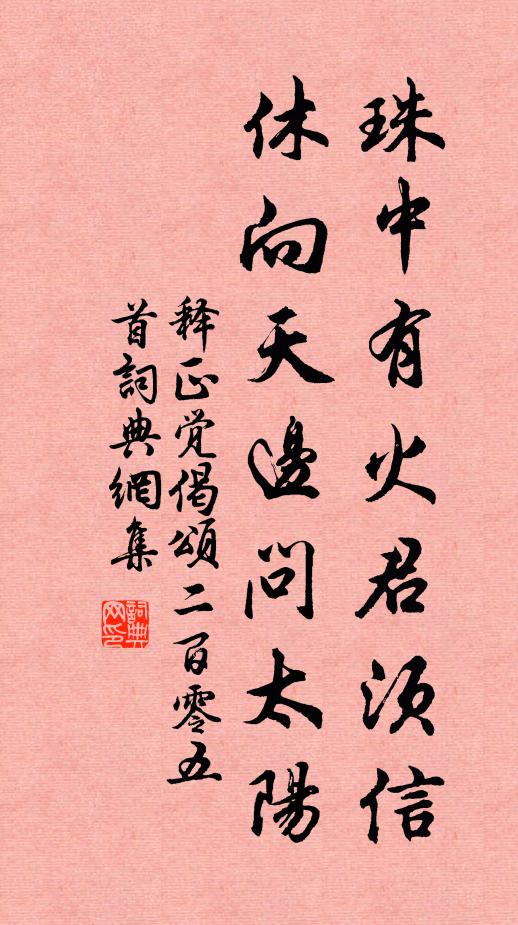 珠中有火君須信
休向天邊問太陽
释正覚偈頌二百零五
首詞典網集
詞典网印